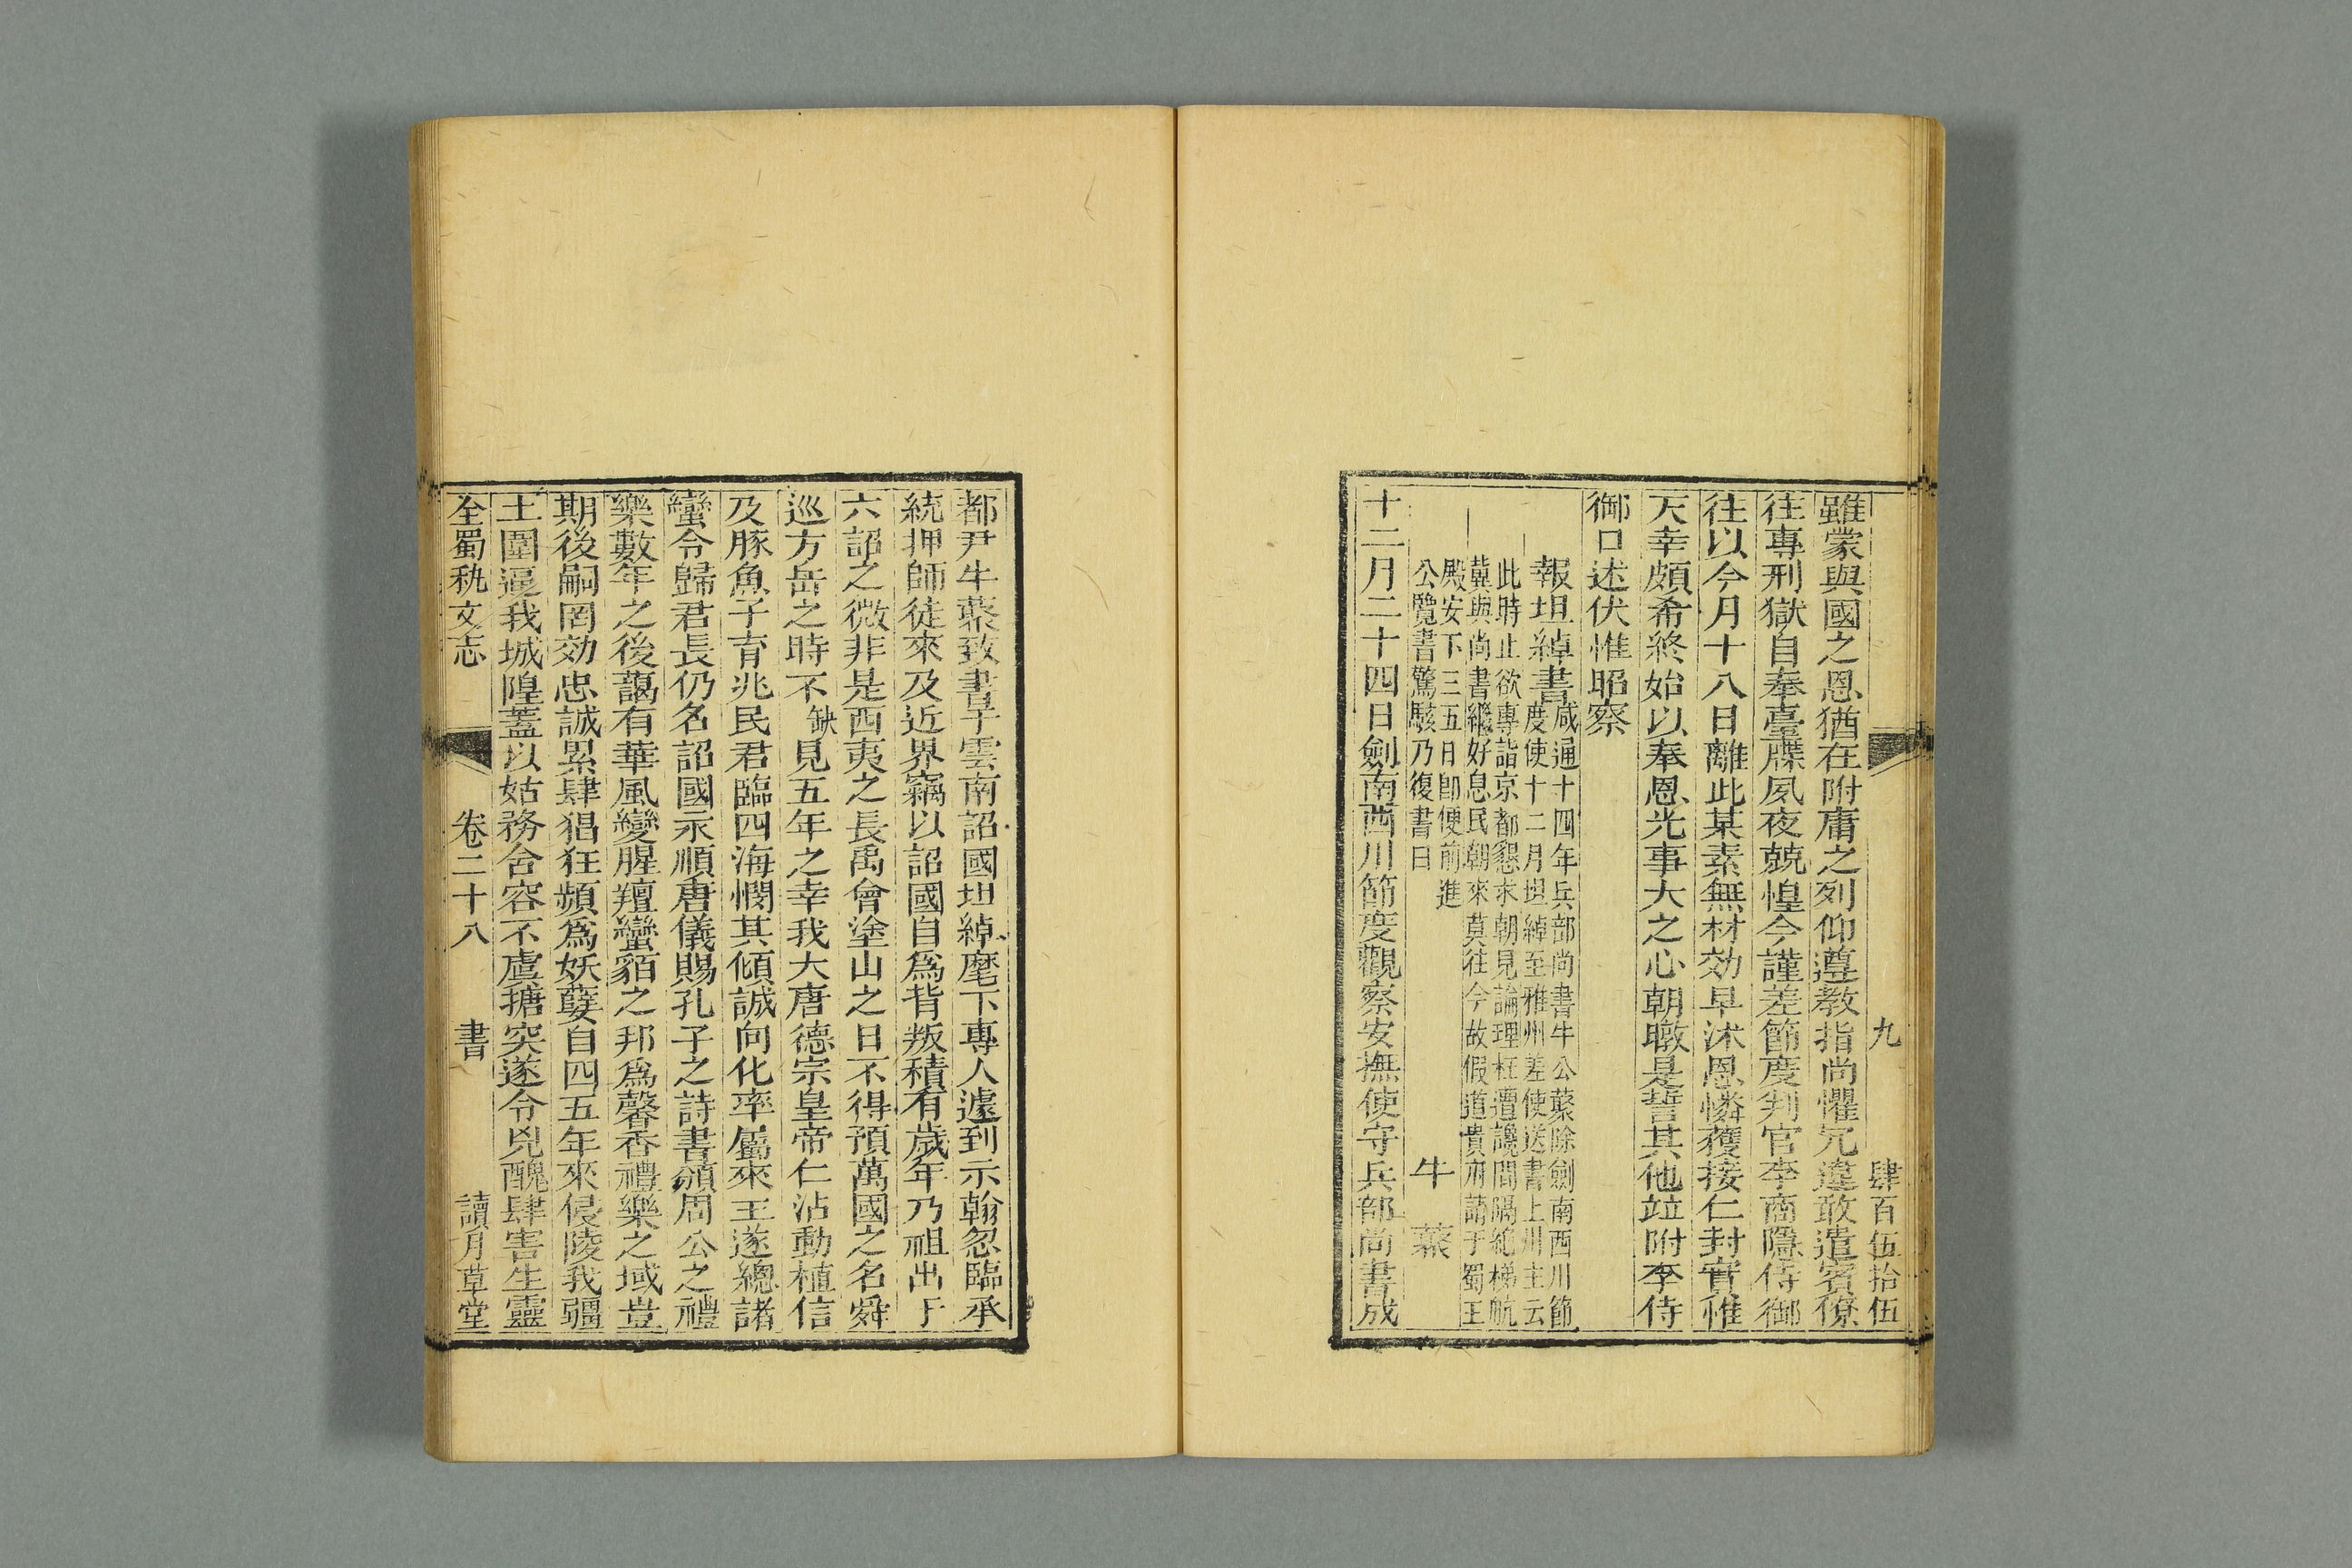 九　肆百伍拾伍
雖蒙與國之恩猶在附庸之列仰遵教指尚懼冗違敢遣賓僚
往專刑獄自奉臺牒夙夜兢惶今謹差節度判官李商隱侍御
往以今月十八日離此某素無材効早沐恩憐獲接仁封實惟
天幸頗希終始以奉恩光事大之心朝暾是誓其他竝附李侍
御口述伏惟昭察
報坦綽書
咸通十四年兵部尚書牛公藂除劍南西川節
度使十二月坦綽至雅州差使送書上川主云
此時止欲專詣京都懇求朝見論理枉遭讒間隔絶梯航
冀與尚書繼好息民朝來莫往今故假道貴府請于蜀王
殿安下三五日卽便前進
公覽書驚駭乃復書曰
牛藂
十二月二十四日劍南西川節度觀察安撫使守兵部尚書成
都尹牛藂致書于雲南詔國坦綽麾下專人遽到示翰忽臨承
統押師徒來及近界竊以詔國自爲背叛積有歲年乃祖出于
六詔之微非是西夷之長禹會塗山之日不得預萬國之名舜
巡方岳之時不缺見五年之幸我大唐德宗皇帝仁沾動植信
及豚魚子育兆民君臨四海憫其傾誠向化率屬來王遂總諸
蠻令歸君長仍名詔國示順唐儀賜孔子之詩書頒周公之禮
樂數年之後藹有華風變腥羶蠻貊之邦爲馨香禮樂之域豈
期後嗣罔効忠誠累肆猖狂頻爲妖孽自四五年來侵陵我疆
土圍逼我城隍蓋以姑務含容不虞搪突遂令兇醜肆害生靈
全蜀秇文志　卷二十八　書　讀月草堂